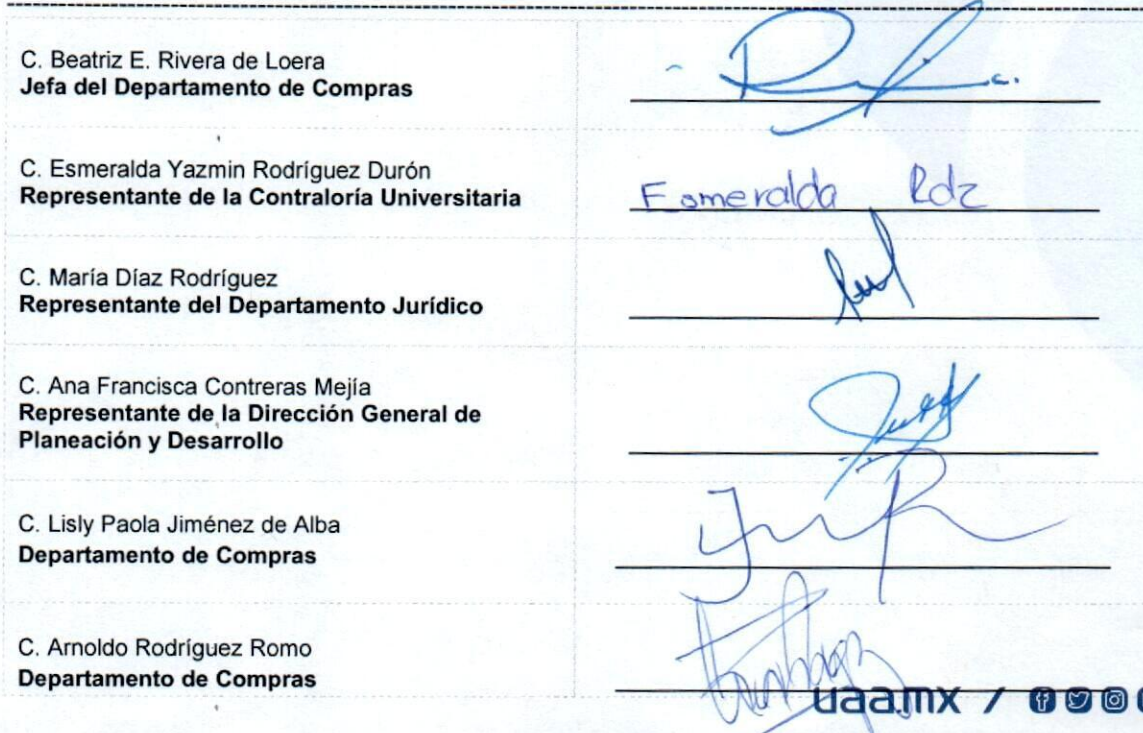 C. Beatriz E. Rivera de Loera
Jefa del Departamento de Compras
C. Esmeralda Yazmin Rodríguez Durón
Representante de la Contraloría Universitaria
Esmeralda Rdz
C. María Díaz Rodríguez
Representante del Departamento Jurídico
C. Ana Francisca Contreras Mejía
Representante de la Dirección General de
Planeación y Desarrollo
C. Lisly Paola Jiménez de Alba
Departamento de Compras
C. Arnoldo Rodríguez Romo
Departamento de Compras
uaa.mx /